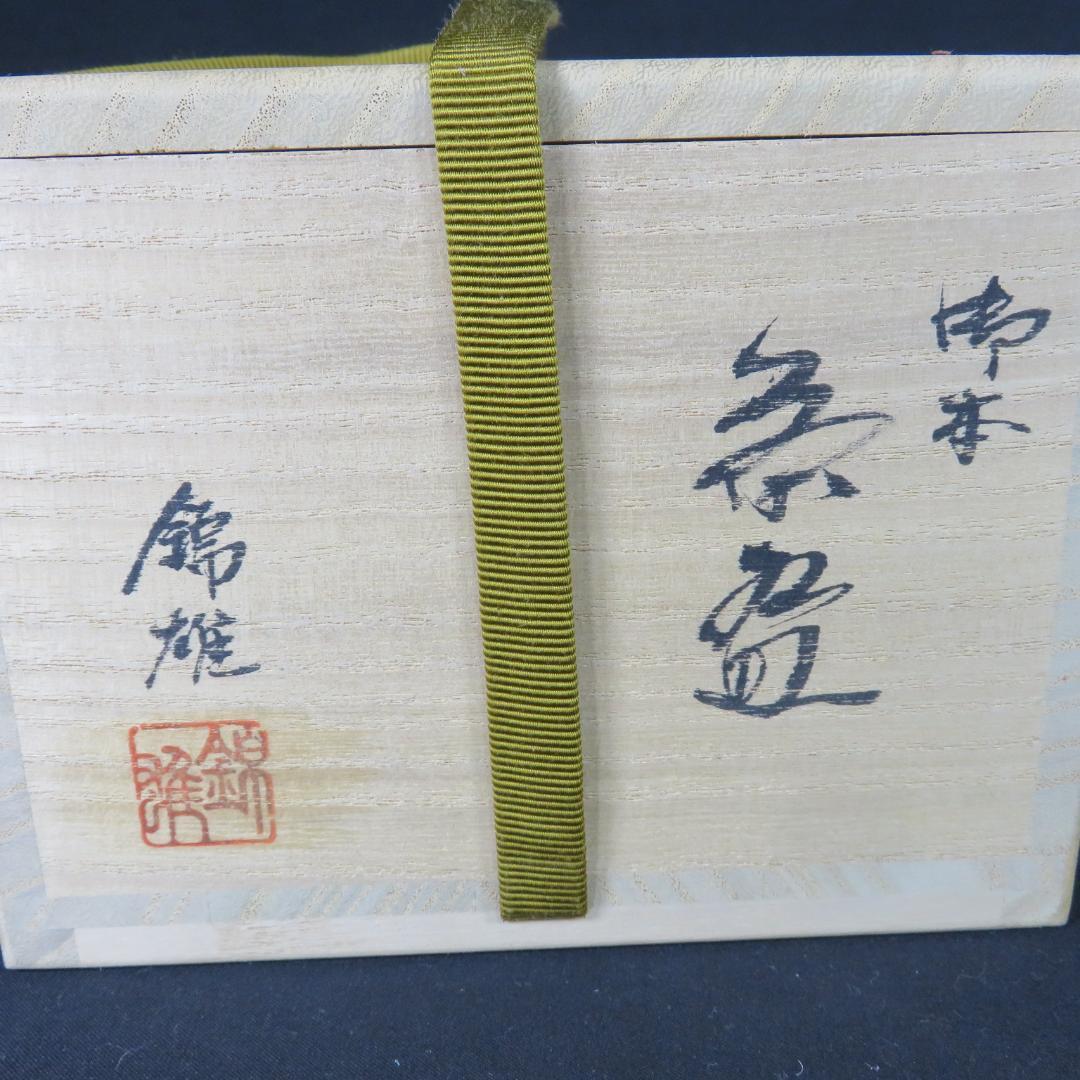 御本
茶盌
錦雄
錦雄